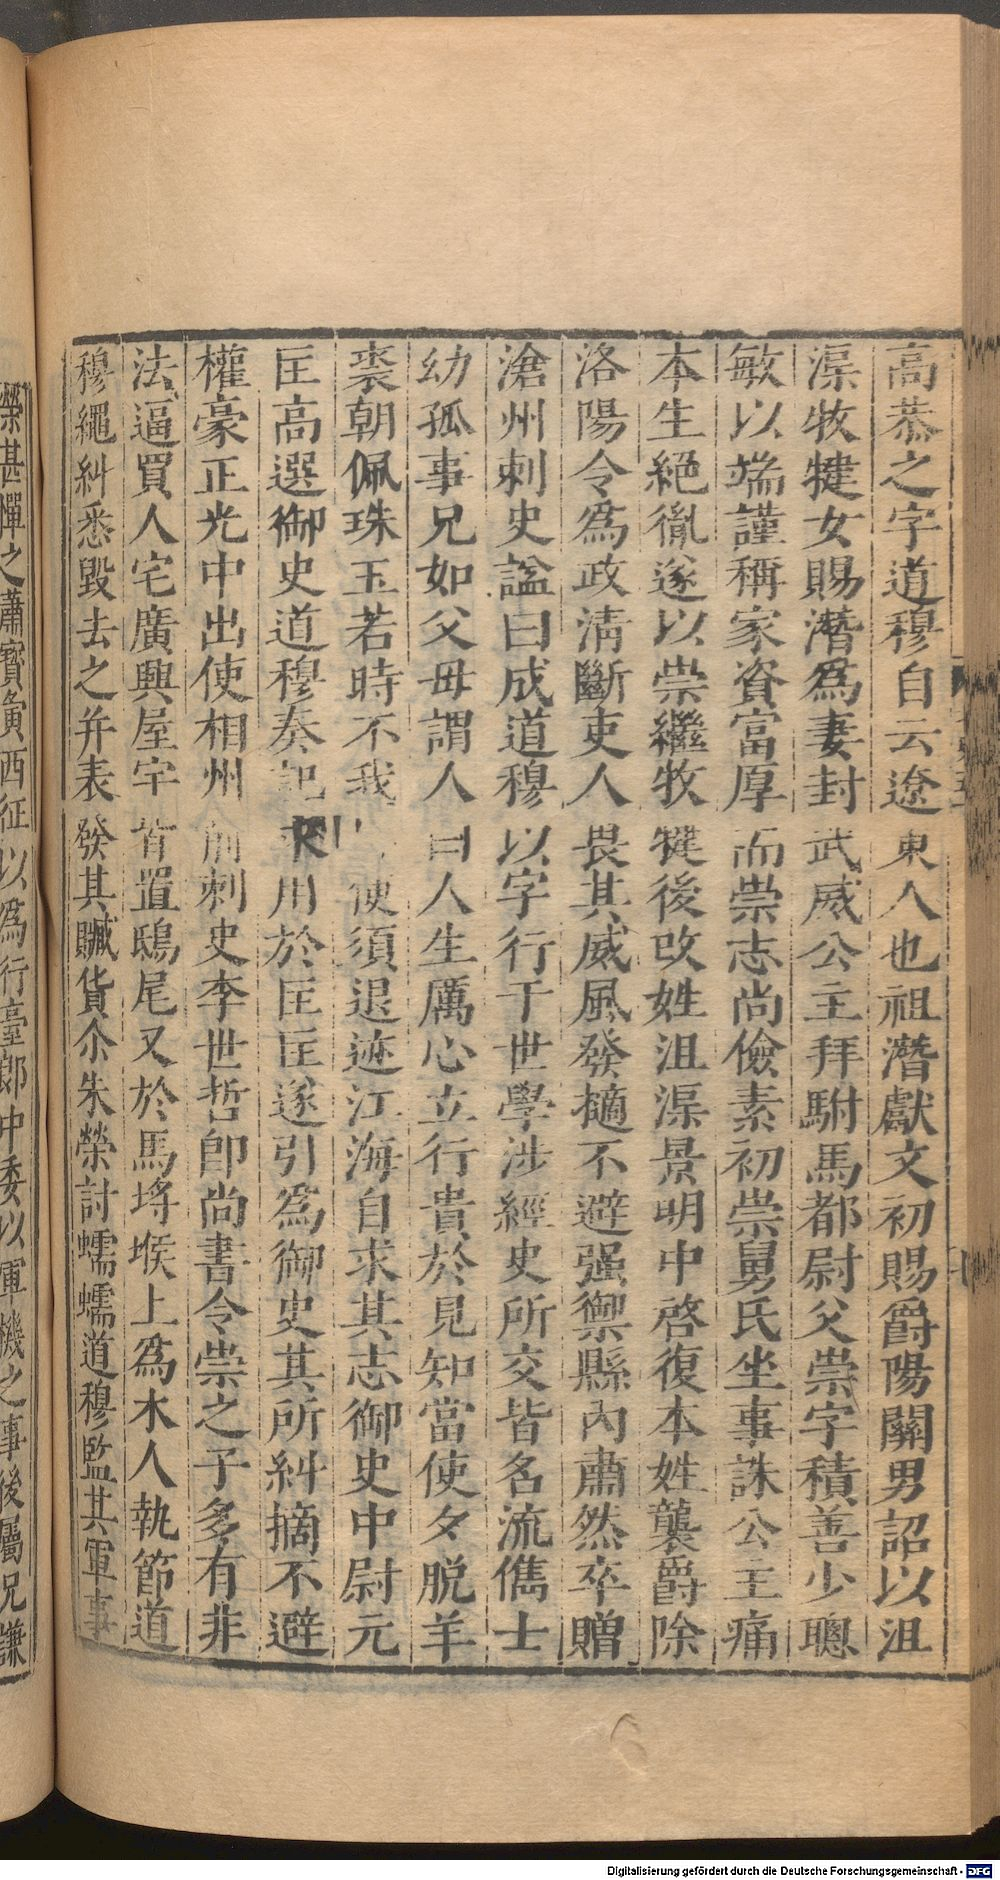 高恭之字道穆自云遼東人也祖潛獻文初賜爵陽關男詔以沮
渠牧犍女賜潛爲妻封武威公主拜駙馬都尉父崇字積善少聰
敏以端謹稱家資富厚而崇志尚儉素初崇舅氏坐事誅公主痛
本生絕胤遂以崇繼牧犍後改姓沮渠景明中啓復本姓襲爵除
洛陽令爲政清斷吏人畏其威風發擿不避强禦縣內肅然卒贈
滄州刺史諡曰成道穆以字行于世學涉經史所交皆名流儁士
幼孤事兄如父母謂人曰人生厲心立行貴於見知當使夕脫羊
裘朝佩珠玉若時不我 便須退迹江海自求其志御史中尉元
匡高選御史道穆奏記求用於匡匡遂引爲御史其所糾摘不避
權豪正光中出使相州前刺史李世哲卽尚書令崇之子多有非
法逼買人宅廣興屋宇皆置鴟尾又於馬埒堠上爲木人執節道
穆繩糾悉毀去之并表發其贓貨尒朱榮討蠕蠕道穆監其軍事
榮甚憚之蕭寶夤西征以爲行臺郎中委以軍機之事後屬兄謙
Digitalisierung gefördert durch die Deutsche Forschungsgemeinschaft - DFG